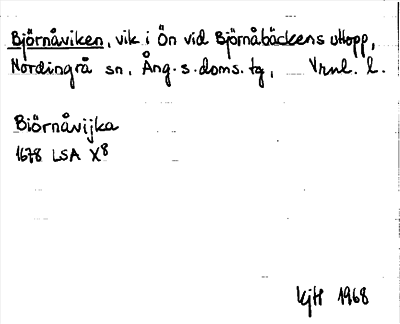 Björnåviken, vik i Ön vid Björnåbäckens utlopp,
Nordingrå sn, Ång. s. doms. tg, Vrnl. l.
Biörnåvijka
1678 LSA X8
KjH 1968